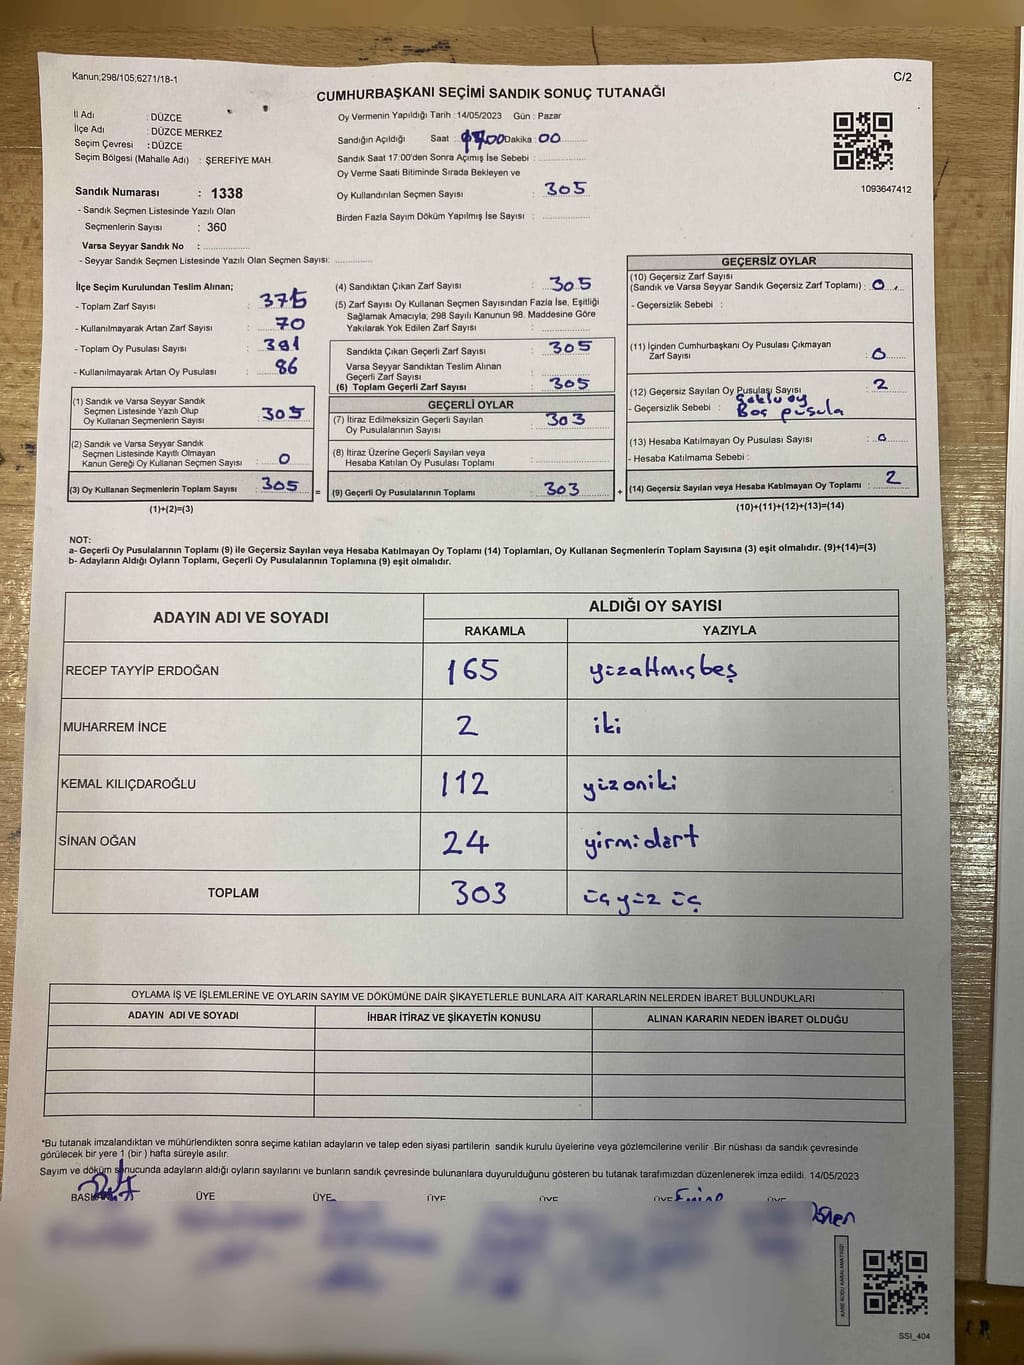 Kanun;298/105;6271/18-1
C/2
CUMHURBAŞKANI SEÇİMİ SANDIK SONUÇ TUTANAĞI
İl Adı : DÜZCE
İlçe Adı : DÜZCE MERKEZ
Seçim Çevresi : DÜZCE
Seçim Bölgesi (Mahalle Adı) : ŞEREFİYE MAH.
Sandık Numarası : 1338
- Sandık Seçmen Listesinde Yazılı Olan
Seçmenlerin Sayısı : 360
Varsa Seyyar Sandık No :
- Seyyar Sandık Seçmen Listesinde Yazılı Olan Seçmen Sayısı:
Oy Vermenin Yapıldığı Tarih : 14/05/2023 Gün : Pazar
Sandığın Açıldığı Saat : Dakika : 00
Sandık Saat 17:00'den Sonra Açımış İse Sebebi :
Oy Verme Saati Bitiminde Sırada Bekleyen ve
Oy Kullandırılan Seçmen Sayısı : 305
Birden Fazla Sayım Döküm Yapılmış İse Sayısı :
1093647412
İlçe Seçim Kurulundan Teslim Alınan;
- Toplam Zarf Sayısı : 375
- Kullanılmayarak Artan Zarf Sayısı : 70
- Toplam Oy Pusulası Sayısı : 391
- Kullanılmayarak Artan Oy Pusulası : 86
(1) Sandık ve Varsa Seyyar Sandık
Seçmen Listesinde Yazılı Olup
Oy Kullanan Seçmenlerin Sayısı : 305
(2) Sandık ve Varsa Seyyar Sandık
Seçmen Listesinde Kayıtlı Olmayan
Kanun Gereği Oy Kullanan Seçmen Sayısı : 0
(3) Oy Kullanan Seçmenlerin Toplam Sayısı : 305
(1)+(2)=(3)
(4) Sandıktan Çıkan Zarf Sayısı : 305
(5) Zarf Sayısı Oy Kullanan Seçmen Sayısından Fazla İse, Eşitliği
Sağlamak Amacıyla; 298 Sayılı Kanunun 98. Maddesine Göre
Yakılarak Yok Edilen Zarf Sayısı :
Sandıkta Çıkan Geçerli Zarf Sayısı : 305
Varsa Seyyar Sandıktan Teslim Alınan
Geçerli Zarf Sayısı :
(6) Toplam Geçerli Zarf Sayısı : 305
=
GEÇERLİ OYLAR
(7) İtiraz Edilmeksizin Geçerli Sayılan
Oy Pusulalarının Sayısı : 303
(8) İtiraz Üzerine Geçerli Sayılan veya
Hesaba Katılan Oy Pusulası Toplamı :
(9) Geçerli Oy Pusulalarının Toplamı : 303
+
GEÇERSİZ OYLAR
(10) Geçersiz Zarf Sayısı
(Sandık ve Varsa Seyyar Sandık Geçersiz Zarf Toplamı) : 0
- Geçersizlik Sebebi :
(11) İçinden Cumhurbaşkanı Oy Pusulası Çıkmayan
Zarf Sayısı : 0
(12) Geçersiz Sayılan Oy Pusulası Sayısı : 2
- Geçersizlik Sebebi : Çoklu oy
Boş pusula
(13) Hesaba Katılmayan Oy Pusulası Sayısı : 0
- Hesaba Katılmama Sebebi :
(14) Geçersiz Sayılan veya Hesaba Katılmayan Oy Toplamı : 2
(10)+(11)+(12)+(13)=(14)
NOT:
a- Geçerli Oy Pusulalarının Toplamı (9) ile Geçersiz Sayılan veya Hesaba Katılmayan Oy Toplamı (14) Toplamları, Oy Kullanan Seçmenlerin Toplam Sayısına (3) eşit olmalıdır. (9)+(14)=(3)
b- Adayların Aldığı Oyların Toplamı, Geçerli Oy Pusulalarının Toplamına (9) eşit olmalıdır.
ADAYIN ADI VE SOYADI
ALDIĞI OY SAYISI
RAKAMLA YAZIYLA
RECEP TAYYİP ERDOĞAN 165 yüzaltmışbeş
MUHARREM İNCE 2 iki
KEMAL KILIÇDAROĞLU 112 yüzoniki
SİNAN OĞAN 24 yirmidört
TOPLAM 303 üçyüz üç
OYLAMA İŞ VE İŞLEMLERİNE VE OYLARIN SAYIM VE DÖKÜMÜNE DAİR ŞİKAYETLERLE BUNLARA AİT KARARLARIN NELERDEN İBARET BULUNDUKLARI
ADAYIN ADI VE SOYADI İHBAR İTİRAZ VE ŞİKAYETİN KONUSU ALINAN KARARIN NEDEN İBARET OLDUĞU
*Bu tutanak imzalandıktan ve mühürlendikten sonra seçime katılan adayların ve talep eden siyasi partilerin sandık kurulu üyelerine veya gözlemcilerine verilir .Bir nüshası da sandık çevresinde
görülecek bir yere 1 (bir ) hafta süreyle asılır.
Sayım ve döküm sonucunda adayların aldığı oyların sayılarını ve bunların sandık çevresinde bulunanlara duyurulduğunu gösteren bu tutanak tarafımızdan düzenlenerek imza edildi. 14/05/2023
BAŞKAN ÜYE ÜYE ÜYE ÜYE ÜYE ÜYE
SSİ_404